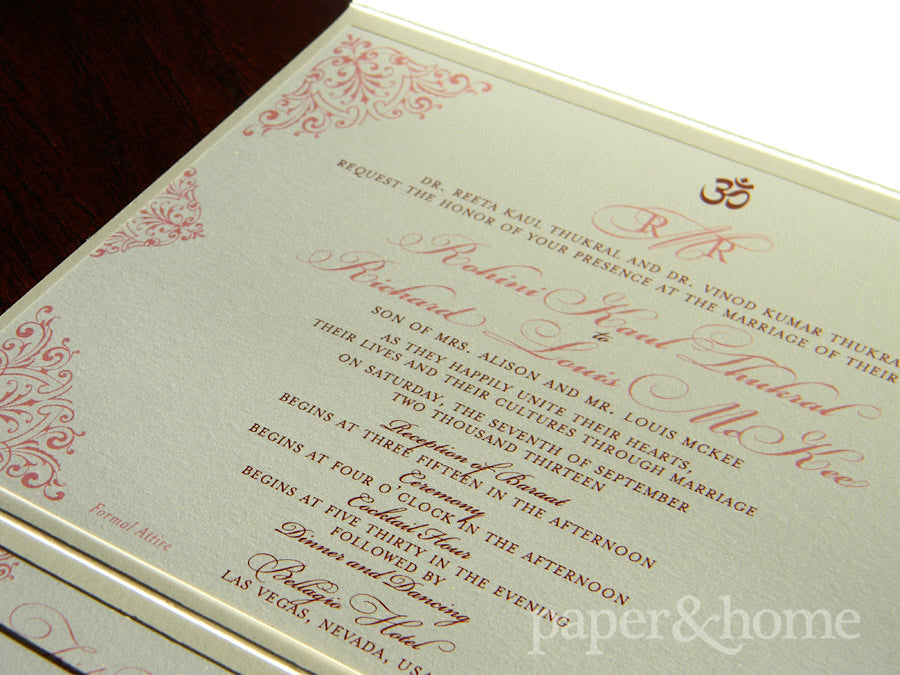 ॐ
R R
DR. REETA KAUL THUKRAL AND DR. VINOD KUMAR THUKRAL
REQUEST THE HONOR OF YOUR PRESENCE AT THE MARRIAGE OF THEIR
Rohini Kaul Thukral
to
Richard Louis McKee
SON OF MRS. ALISON AND MR. LOUIS MCKEE
AS THEY HAPPILY UNITE THEIR HEARTS,
THEIR LIVES AND THEIR CULTURES THROUGH MARRIAGE
ON SATURDAY, THE SEVENTH OF SEPTEMBER
TWO THOUSAND THIRTEEN
Reception of Baraat
BEGINS AT THREE FIFTEEN IN THE AFTERNOON
Ceremony
BEGINS AT FOUR O'CLOCK IN THE AFTERNOON
Cocktail Hour
BEGINS AT FIVE THIRTY IN THE EVENING
FOLLOWED BY
Dinner and Dancing
Bellagio Hotel
LAS VEGAS, NEVADA, USA
Formal Attire
paper&home